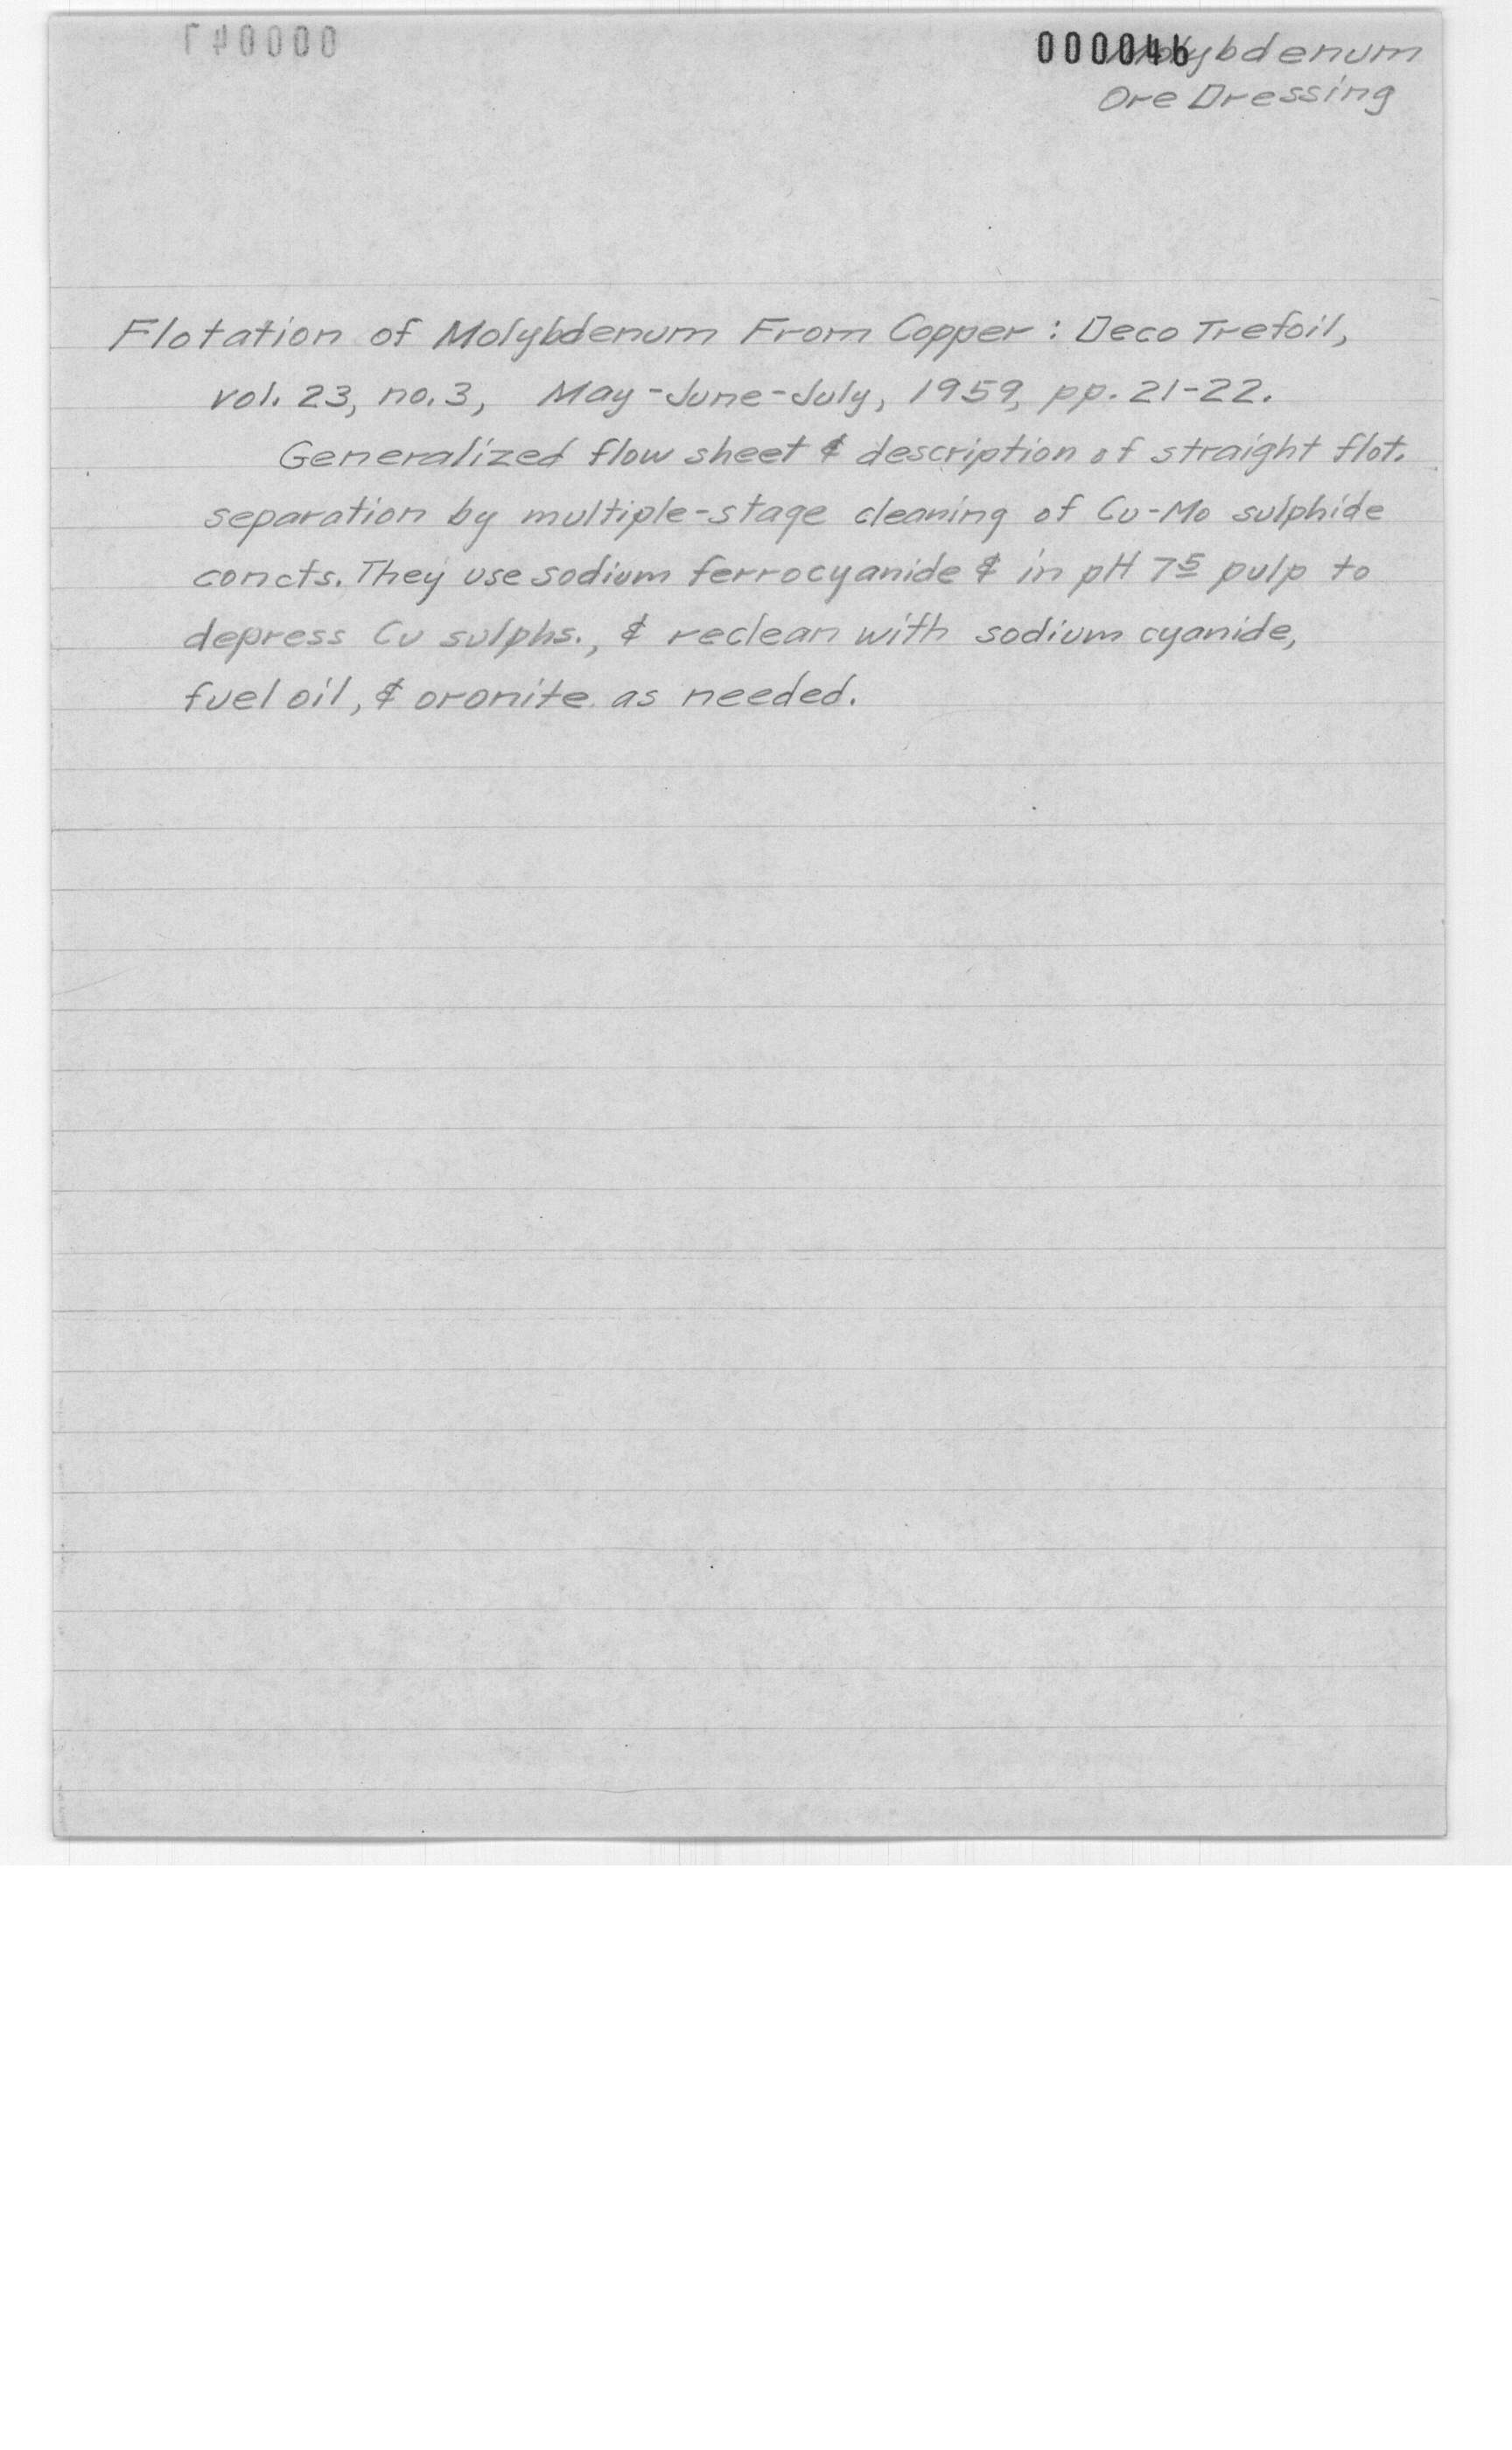 000046
Molybdenum
Ore Dressing
Flotation of Molybdenum From Copper : Deco Trefoil,
vol. 23, no. 3, May-June-July, 1959, pp. 21-22.
Generalized flow sheet & description of straight flot.
separation by multiple-stage cleaning of Cu-Mo sulphide
concts. They use sodium ferrocyanide & in pH 7⁵ pulp to
depress Cu sulphs., & reclean with sodium cyanide,
fuel oil, & oronite as needed.